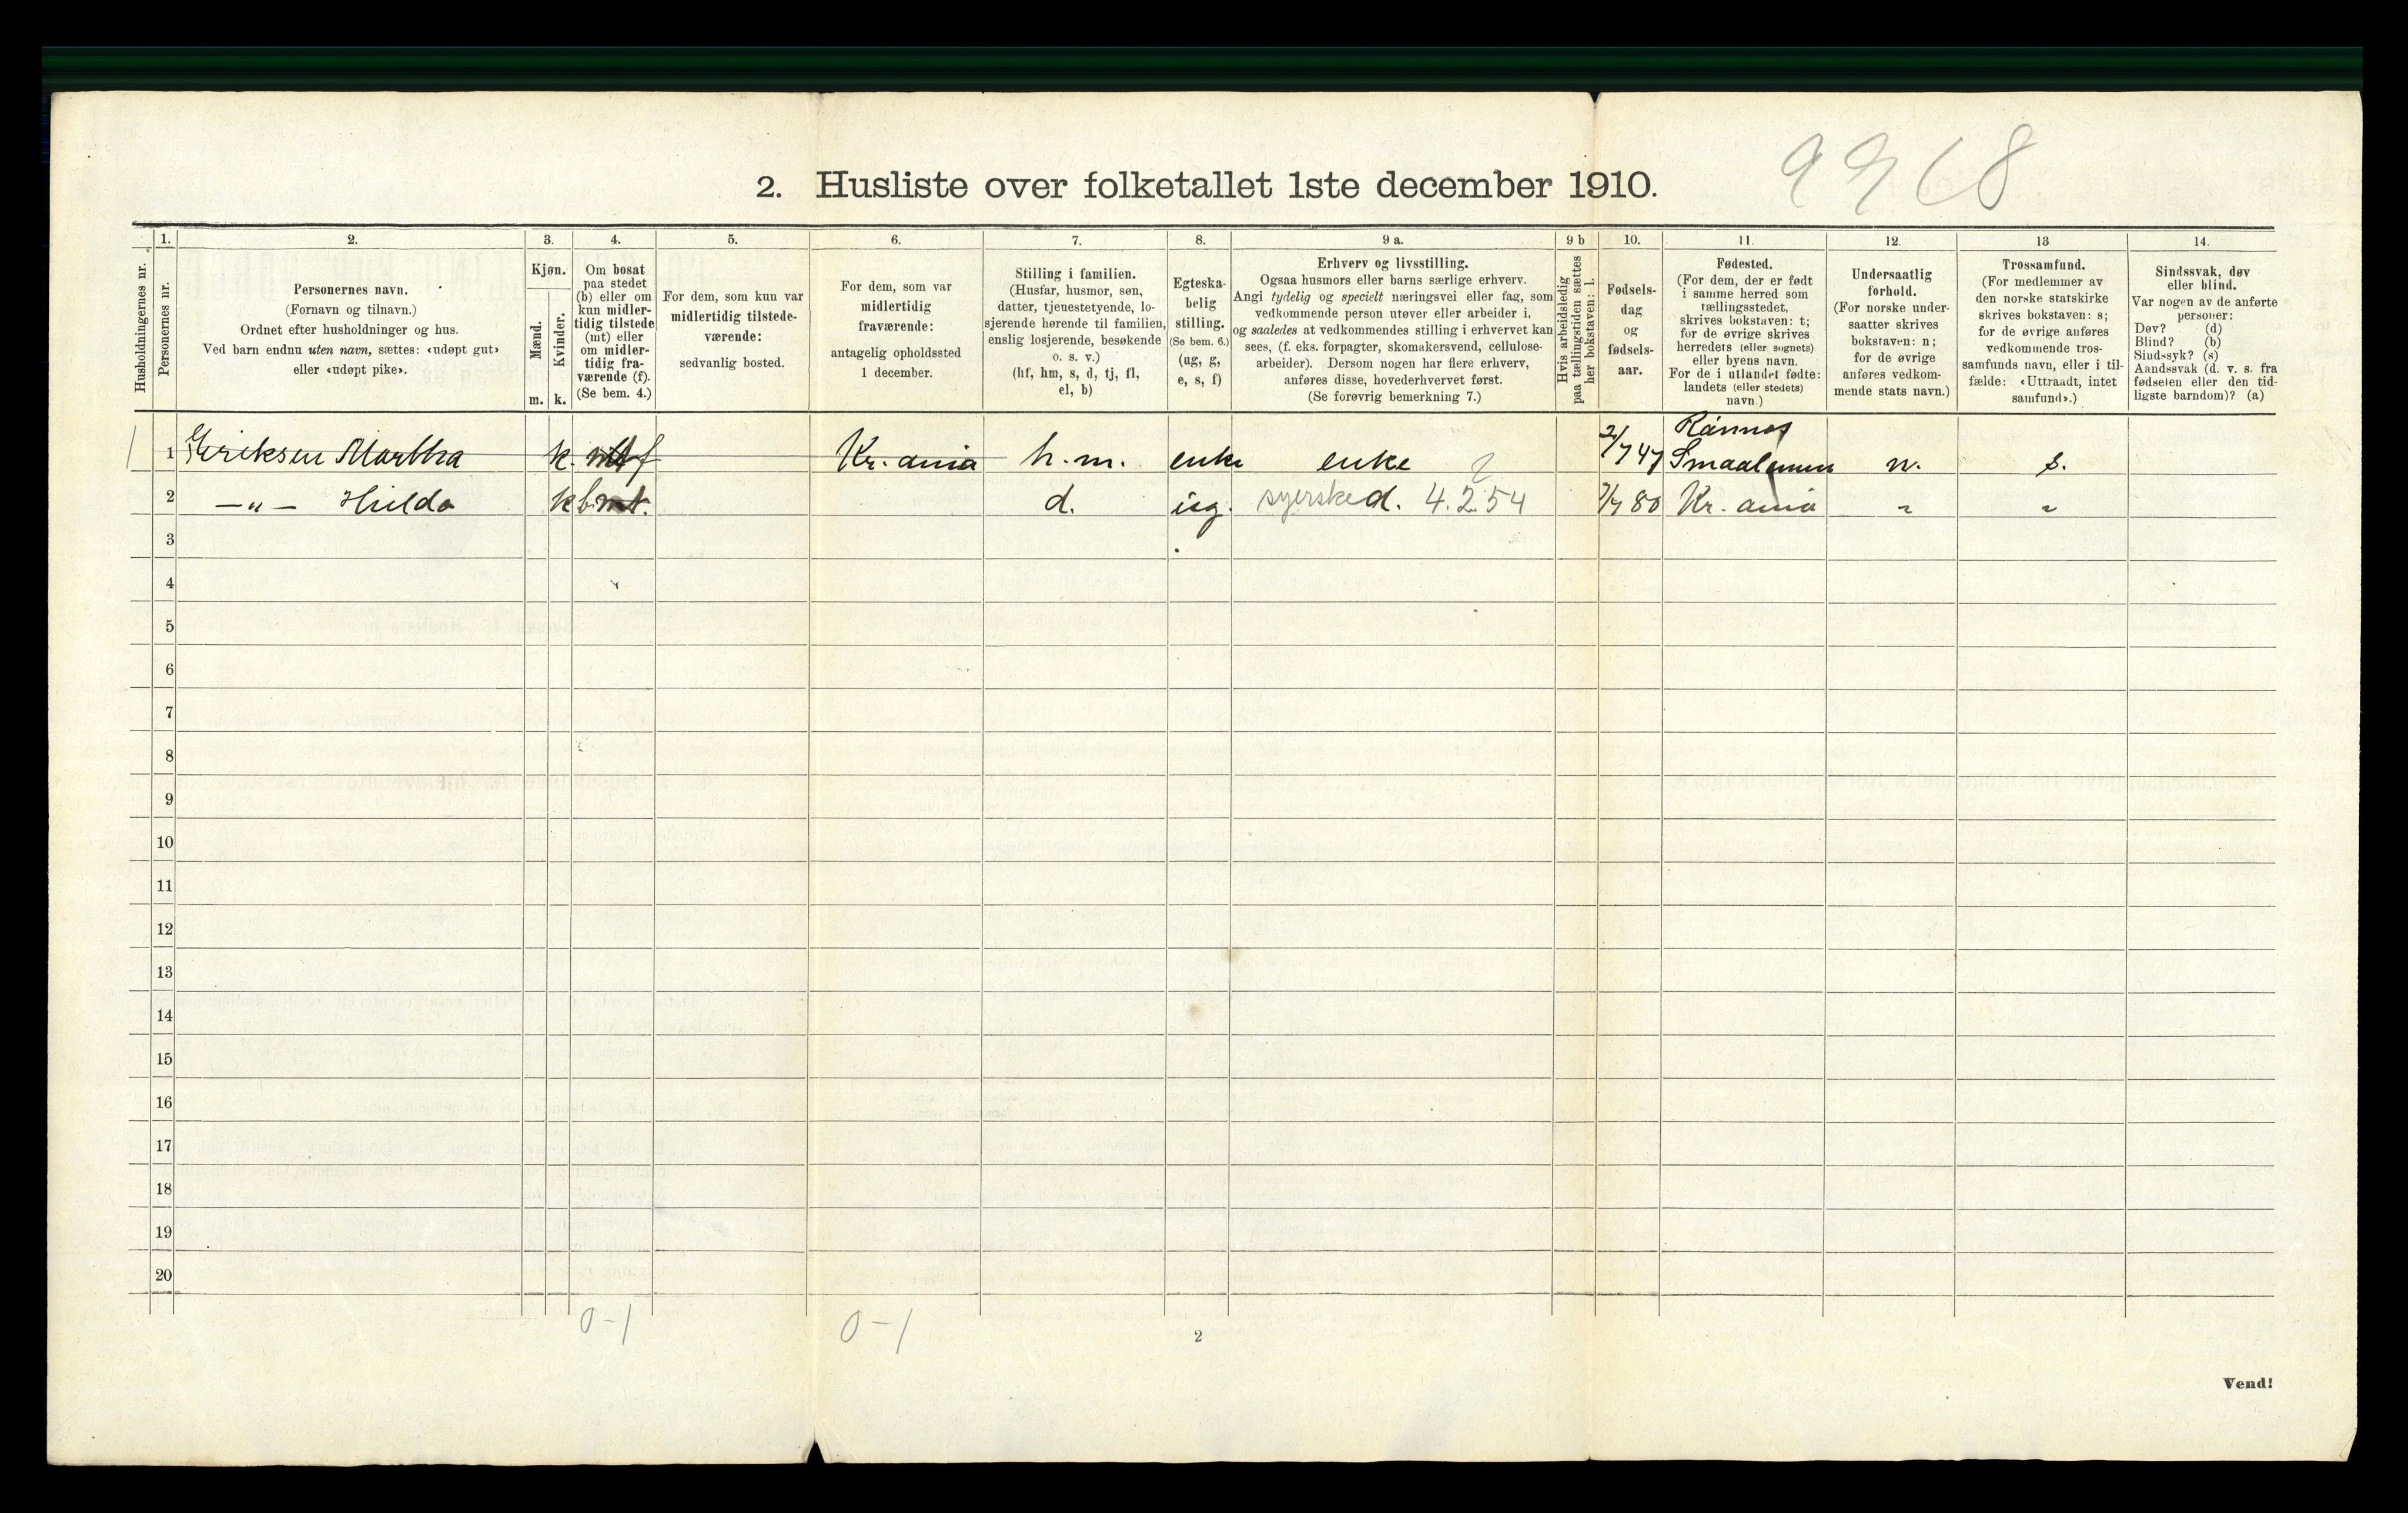 9968
2. Husliste over folketallet 1ste december 1910.
Husholdningernes nr.
1.
Personernes nr.
2.
Personernes navn.
(Fornavn og tilnavn.)
Ordnet efter husholdninger og hus.
Ved barn endnu uten navn, sættes: «udøpt gut»
eller «udøpt pike».
3.
Kjøn.
Mænd.
Kvinder.
m. k.
4.
Om bosat
paa stedet
(b) eller om
kun midler-
tidig tilstede
(mt) eller
om midler-
tidig fra-
værende (f).
(Se bem. 4.)
5.
For dem, som kun var
midlertidig tilstede-
værende:
sedvanlig bosted.
6.
For dem, som var
midlertidig
fraværende:
antagelig opholdssted
1 december.
7.
Stilling i familien.
(Husfar, husmor, søn,
datter, tjenestetyende, lo-
sjerende hørende til familien,
enslig losjerende, besøkende
o. s. v.)
(hf, hm, s, d, tj, fl,
el, b)
8.
Egteska-
belig
stilling.
(Se bem. 6.)
(ug, g,
e, s, f)
9 a.
Erhverv og livsstilling.
Ogsaa husmors eller barns særlige erhverv.
Angi tydelig og specielt næringsvei eller fag, som
vedkommende person utøver eller arbeider i,
og saaledes at vedkommendes stilling i erhvervet kan
sees, (f. eks. forpagter, skomakersvend, cellulose-
arbeider). Dersom nogen har flere erhverv,
anføres disse, hovederhvervet først.
(Se forøvrig bemerkning 7.)
9 b
Hvis arbeidsledig
paa tællingstiden sættes
her bokstaven: l.
10.
Fødsels-
dag
og
fødsels-
aar.
11.
Fødested.
(For dem, der er født
i samme herred som
tællingsstedet,
skrives bokstaven: t;
for de øvrige skrives
herredets (eller sognets)
eller byens navn.
For de i utlandet fødte:
landets (eller stedets)
navn.)
12.
Undersaatlig
forhold.
(For norske under-
saatter skrives
bokstaven: n;
for de øvrige
anføres vedkom-
mende stats navn.)
13
Trossamfund.
(For medlemmer av
den norske statskirke
skrives bokstaven: s;
for de øvrige anføres
vedkommende tros-
samfunds navn, eller i til-
fælde: «Uttraadt, intet
samfund».)
14.
Sindssvak, døv
eller blind.
Var nogen av de anførte
personer:
Døv? (d)
Blind? (b)
Sindssyk? (s)
Aandssvak (d. v. s. fra
fødselen eller den tid-
ligste barndom)? (a)
1 1 Eriksen Martha k. mt f Kr. ania h.m. enke enke 2/7 47 Smaalenene n. s.
2 —„— Hilda k b mt. d. ug. syerske d. 4.2.54 7/7 80 Kr. ania „ „
3
4
5
6
7
8
9
10
11
12
13
14
15
16
17
18
19
20
0-1 0-1
2
Vend!